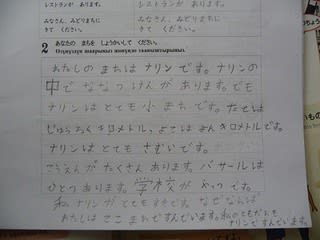 レストランが あります。 レストランが あります。
みなさん、みどりまちに みなさん、みどりまちに
きて ください。 きて ください。
2 あなたの まちを しょうかいして ください。
わたしの まちは ナリンです。ナリンの
中で ななつ けんが あります。でも
ナリンはとても 小 まち です。たては
じゅうろく キロメトル、よこは よん キロメトルです。
ナリンは とても さむい です。
こうえんが たくさん あります。バサールは
ひとつ あります。学校が やっつ です。
私 ナリンが とても すきです。なぜ ならば
わたしは ここ まちで すんでいます。私のともだちも
ナリンで すんでいます。